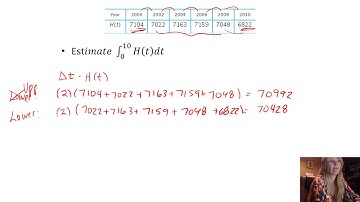 Year 2000 2002 2004 2006 2008 2010
H(t) 7104 7022 7163 7159 7048 6822
• Estimate ∫₀¹⁰ H(t)dt
Δt · H(t)
Upper:
(2)(7104+7022+7163+7159+7048) = 70992
Lower: (2)(7022+7163+7159+7048+6822) = 70428